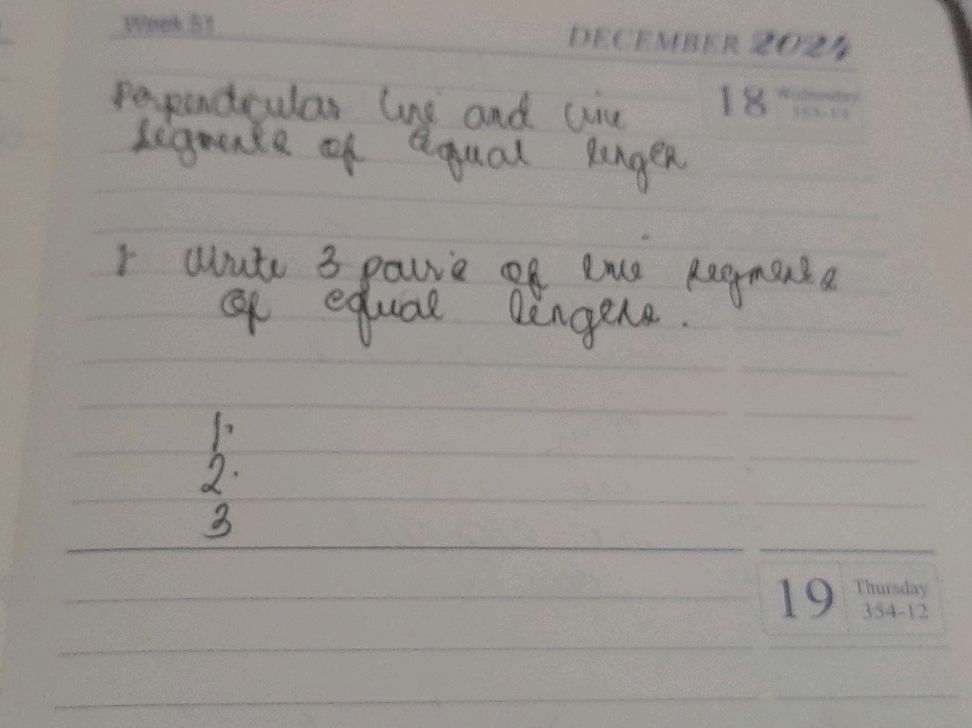 Week 51
DECEMBER 2024
18 Wednesday
353-13
Perpendicular line and line
segments of equal lenger
1 Write 3 pairs of line segments
of equal lengers.
1.
2.
3
19 Thursday
354-12